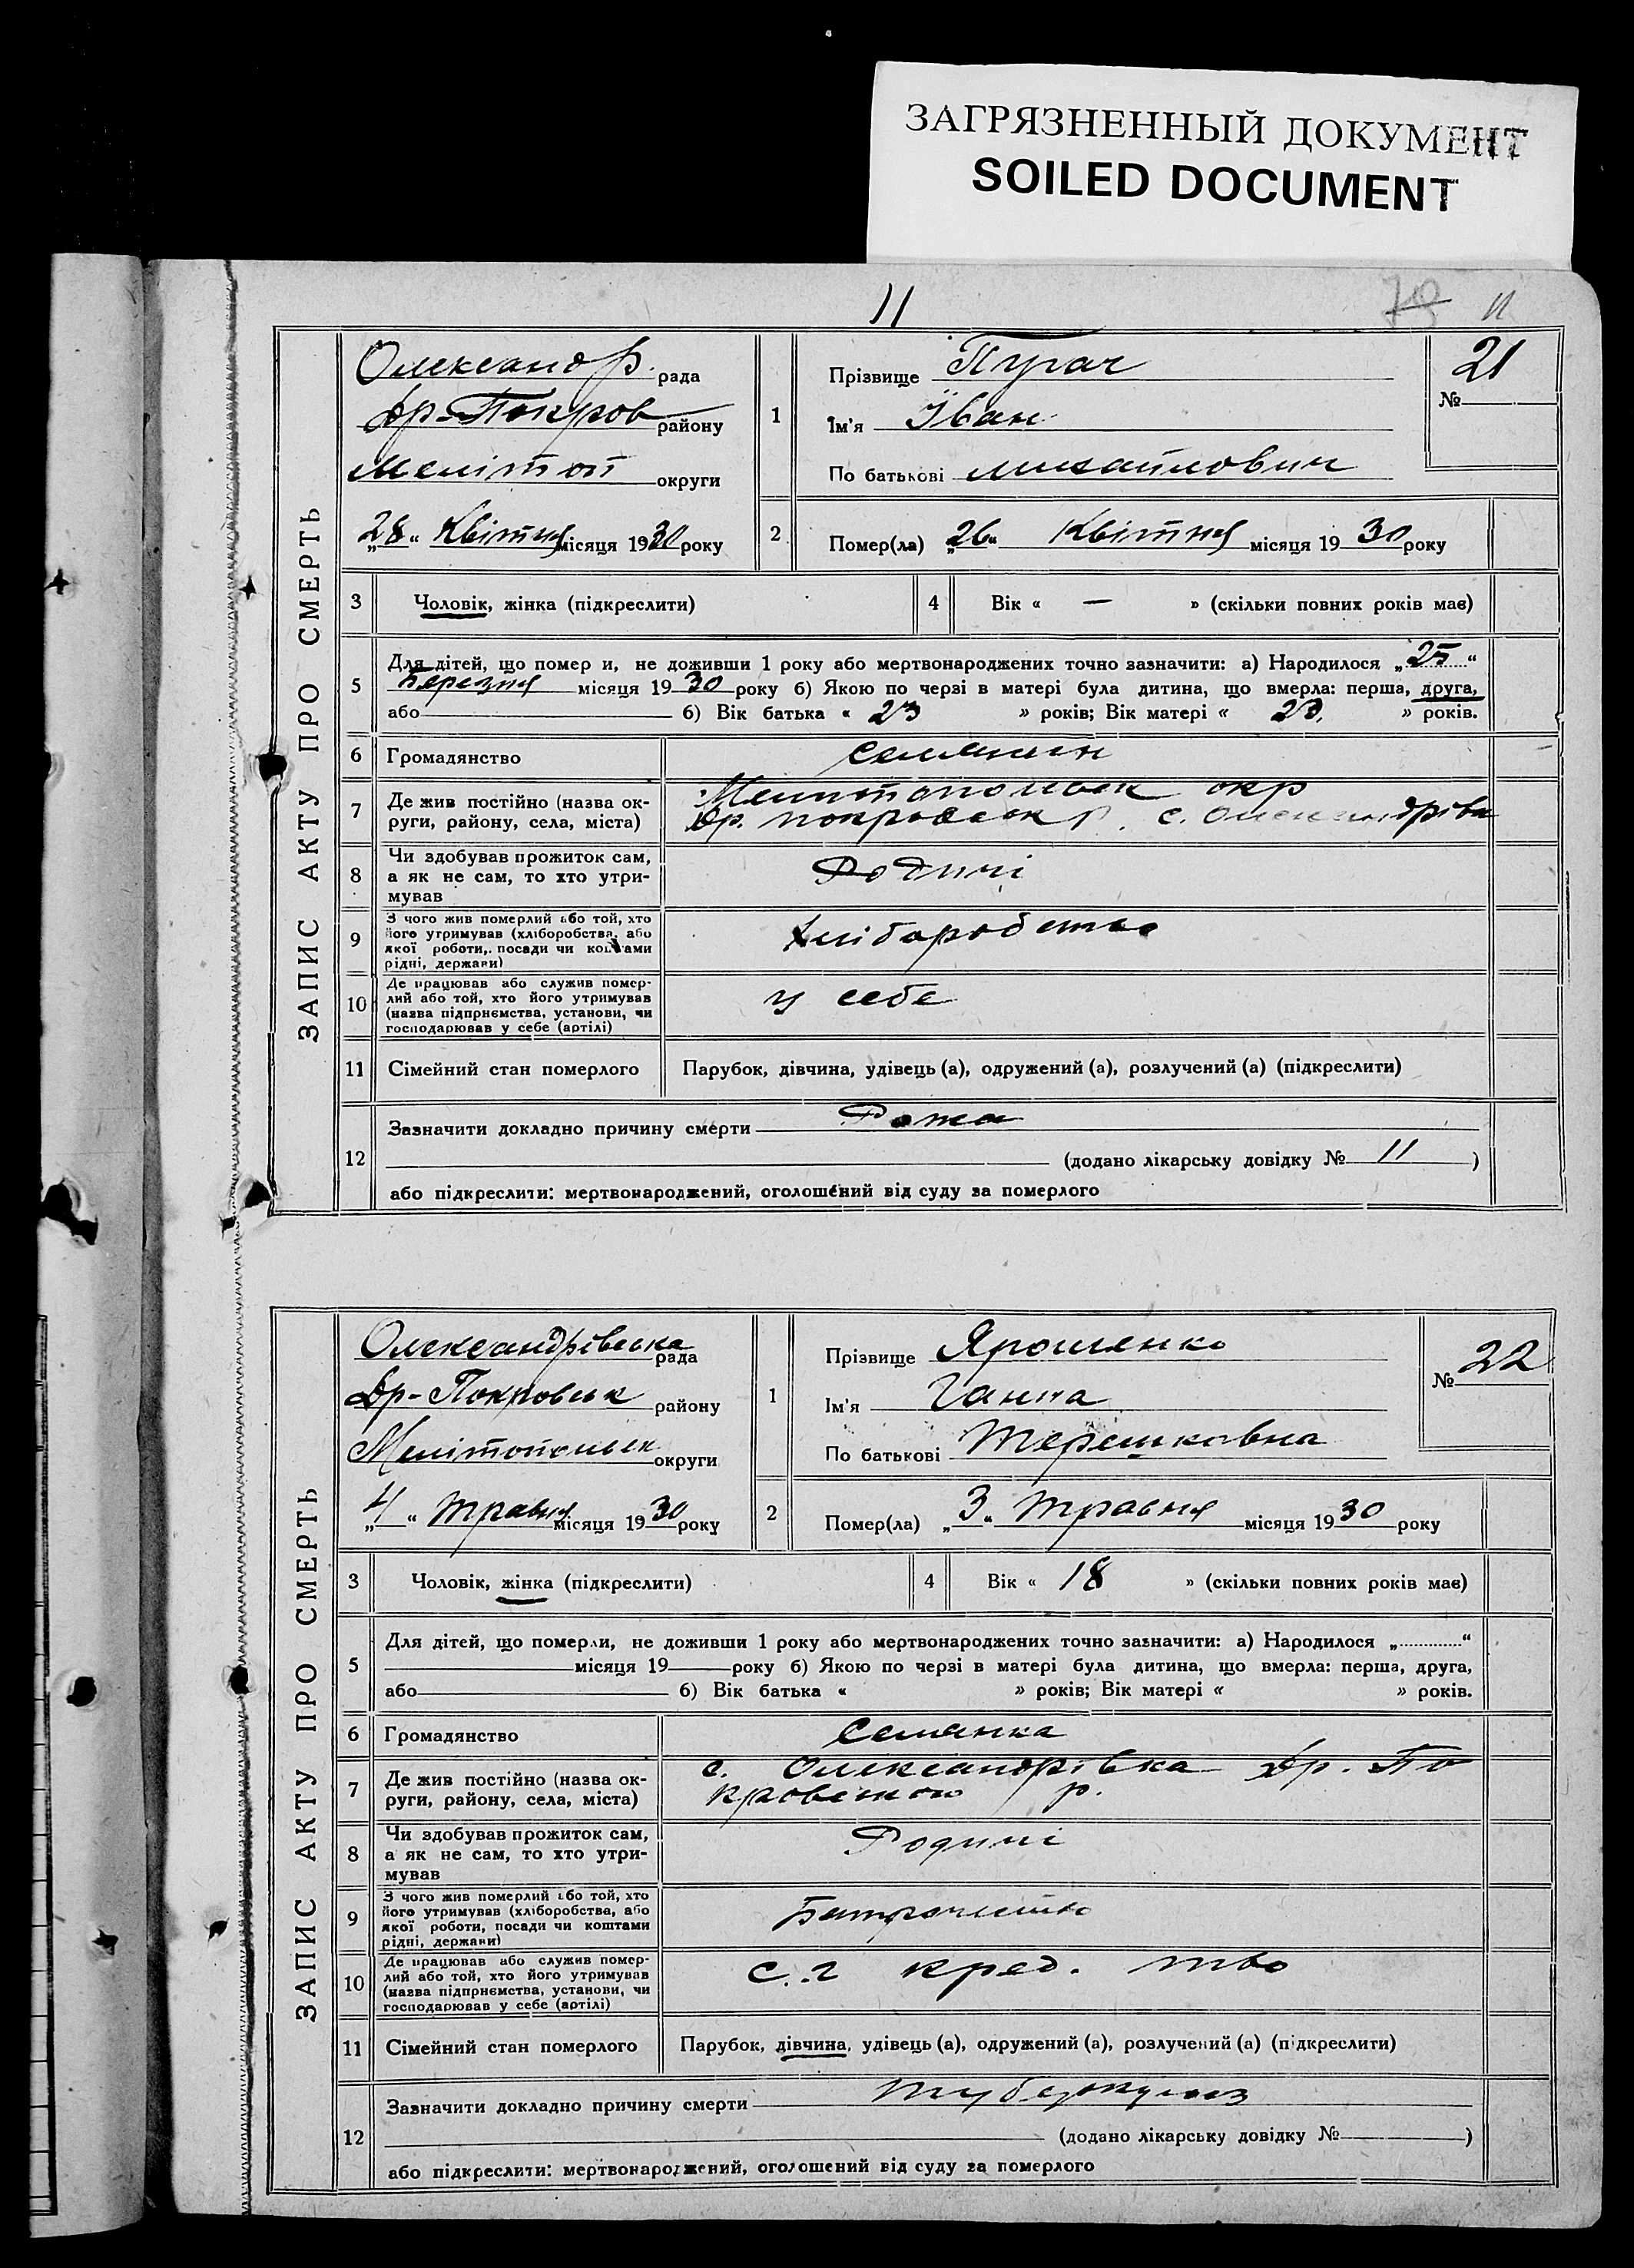 ЗАГРЯЗНЕННЫЙ ДОКУМЕНТ
SOILED DOCUMENT
11
79 11
ЗАПИС АКТУ ПРО СМЕРТЬ
Олександр. рада
Др-Покров району
Меліт округи
„28“ Квітня місяця 1930 року
1
Прізвище Пугач
Ім'я Іван
По батькові Михайлович
№ 21
2 Помер(ла) „26“ Квітня місяця 19 30 року
3 Чоловік, жінка (підкреслити)
4 Вік « — » (скільки повних років має)
5 Для дітей, що помер и, не доживши 1 року або мертвонароджених точно зазначити: а) Народилося „25“
Березня місяця 19 30 року б) Якою по черзі в матері була дитина, що вмерла: перша, друга,
або б) Вік батька « 23 » років; Вік матері « 23. » років.
6 Громадянство селянин
7 Де жив постійно (назва ок-
руги, району, села, міста)
Мелитопольск окр
Др. покровськ р. с. Олександрівк
8 Чи здобував прожиток сам,
а як не сам, то хто утри-
мував
Родичі
9 З чого жив померлий або той, хто
його утримував (хліборобства, або
якої роботи, посади чи коштами
рідні, держави)
Хліборобство
10 Де працював або служив помер-
лий або той, хто його утримував
(назва підприємства, установи, чи
господарював у себе (артілі)
у себе
11 Сімейний стан померлого Парубок, дівчина, удівець (а), одружений (а), розлучений (а) (підкреслити)
12 Зазначити докладно причину смерти Рожа
(додано лікарську довідку № 11 )
або підкреслити: мертвонароджений, оголошений від суду за померлого
ЗАПИС АКТУ ПРО СМЕРТЬ
Олександрівська рада
Др-Покровськ району
Мелітопольськ округи
„4“ травня місяця 1930 року
1
Прізвище Ярошенко
Ім'я Ганна
По батькові Терешковна
№ 22
2 Помер(ла) „3“ травня місяця 19 30 року
3 Чоловік, жінка (підкреслити)
4 Вік « 18 » (скільки повних років має)
5 Для дітей, що померли, не доживши 1 року або мертвонароджених точно зазначити: а) Народилося „ “
місяця 19 року б) Якою по черзі в матері була дитина, що вмерла: перша, друга,
або б) Вік батька « » років; Вік матері « » років.
6 Громадянство Селянка
7 Де жив постійно (назва ок-
руги, району, села, міста)
с. Олександрівка Др. По
кровського р.
8 Чи здобував прожиток сам,
а як не сам, то хто утри-
мував
Родичі
9 З чого жив померлий або той, хто
його утримував (хліборобства, або
якої роботи, посади чи коштами
рідні, держави)
10 Де працював або служив помер-
лий або той, хто його утримував
(назва підприємства, установи, чи
господарював у себе (артілі)
с.г кред. тво
11 Сімейний стан померлого Парубок, дівчина, удівець (а), одружений (а), розлучений (а) (підкреслити)
12 Зазначити докладно причину смерти туберкульоз
(додано лікарську довідку № )
або підкреслити: мертвонароджений, оголошений від суду за померлого